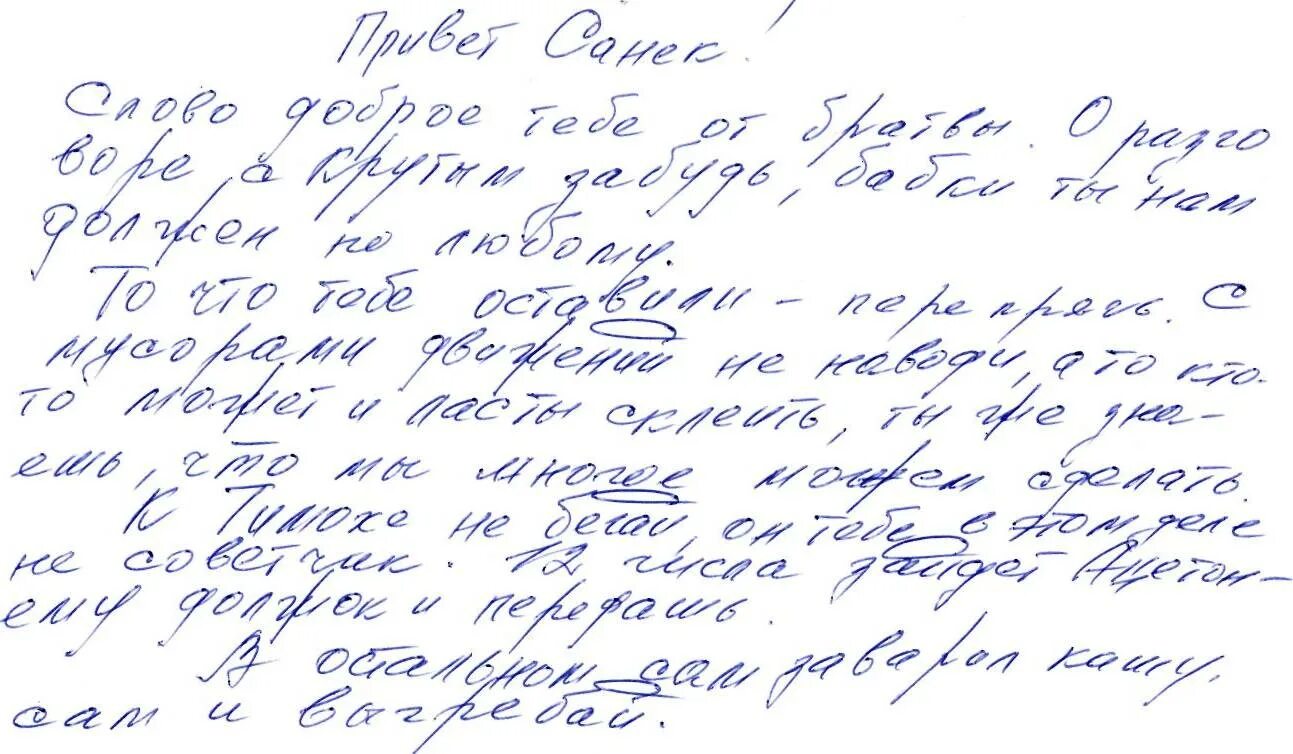 Привет Санек!
Слово доброе тебе от братвы. О разго
воре с крутым забудь, бабки ты нам
должен по любому.
То что тебе оставили – перепрячь. С
мусорами движений не наводи, а то кто-
то может и ласты склеить, ты же зна-
ешь, что мы многое можем сделать.
К Тимохе не бегай, он тебе в этом деле
не советчик. 12 числа зайдет Ацетон –
ему должок и передашь.
В остальном сам заварил кашу,
сам и выгребай.